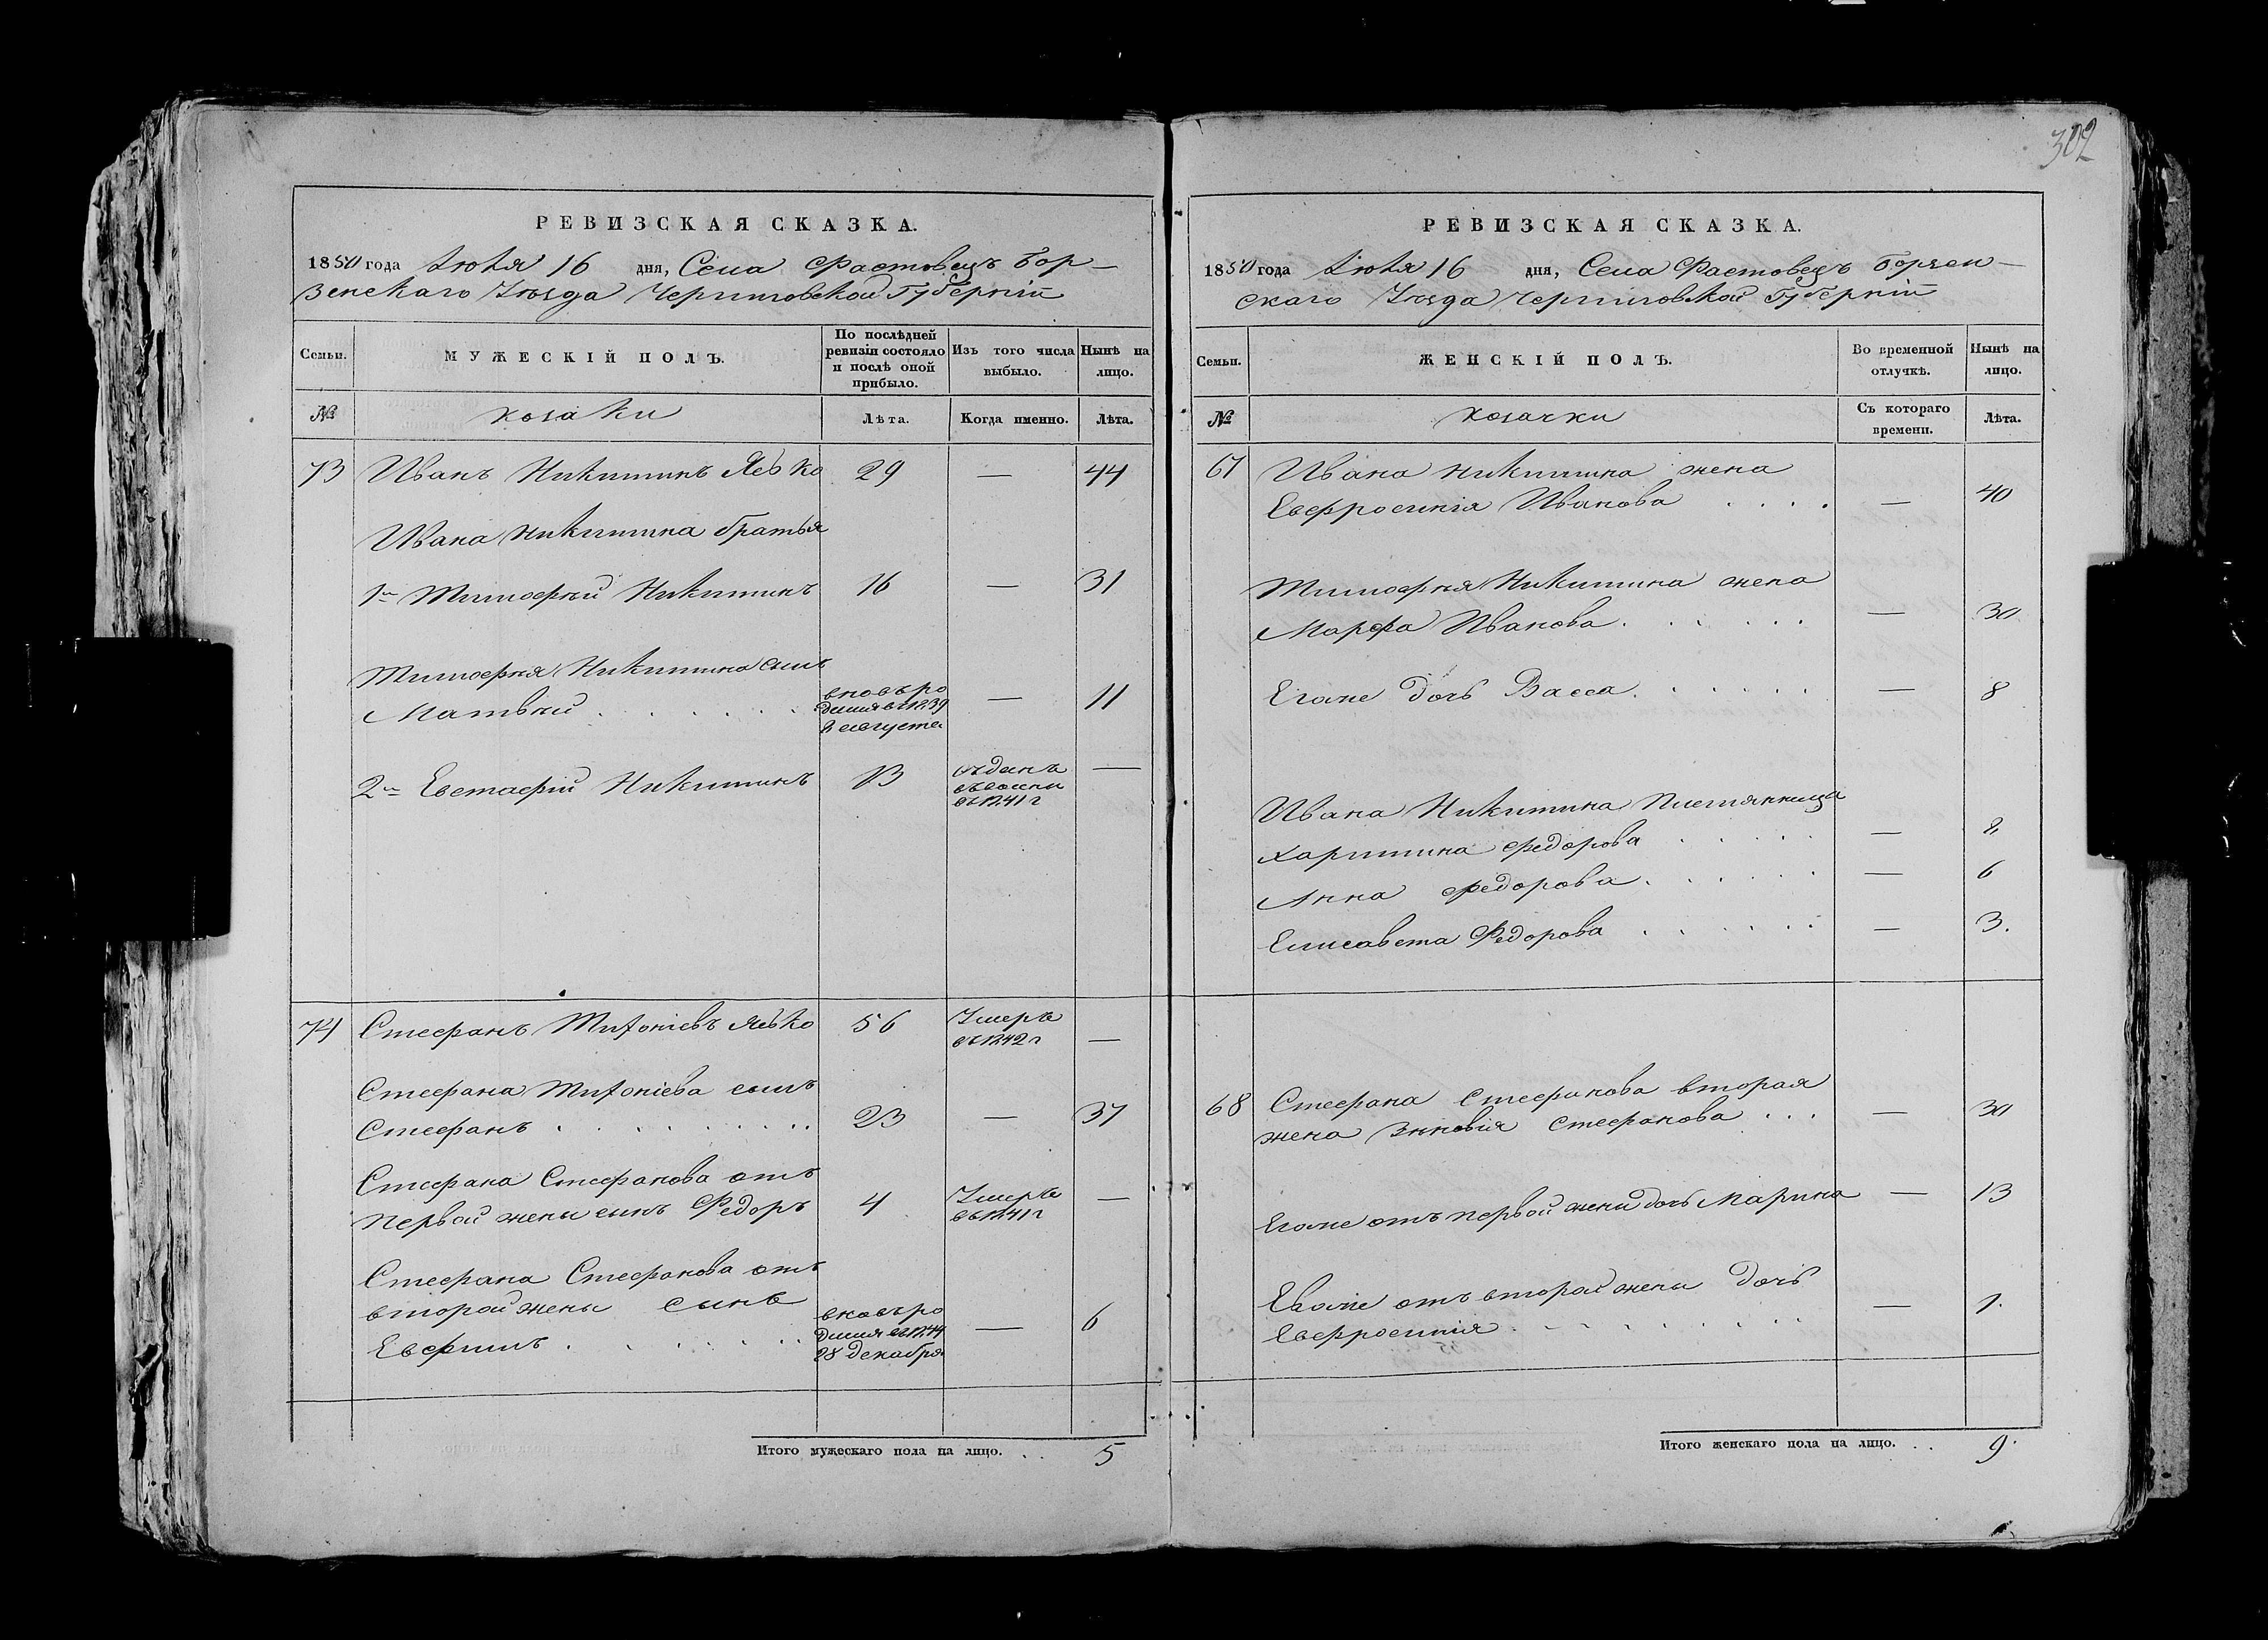 302
РЕВИЗСКАЯ СКАЗКА.
1850 года Июля 16 дня, Села Фастовецъ Бор-
зенскаго Уѣзда Черниговской Губерніи
Семьи.
МУЖЕСКІЙ ПОЛЪ.
По послѣдней ревизіи состояло и послѣ оной прибыло.
Изъ того числа выбыло.
Нынѣ на лицо.
№
козаки
Лѣта.
Когда именно.
Лѣта.
73 Иванъ Никитинъ Явко 29 — 44
Ивана Никитина братья
1й Тимофѣй Никитинъ 16 — 31
Тимофѣя Никитина сынъ
Матвѣй . . . . . . вновь ро — 11
дился въ 1839
2 августа
2й Евстафій Никитинъ 13 отданъ —
въ 1841 г
74 Стефанъ Яв­ко 56 Умеръ
въ 1842 г —
Стефана сынъ
Стефанъ . . . . . . . . 23 — 37
Стефана Стефанова отъ
первой жены сынъ Федоръ 4 Умеръ —
въ 1841 г
Стефана Стефанова отъ
второй жены сынъ
Евфимъ . . . . . вновь ро — 6
дился въ 1844
28 декабря
Итого мужескаго пола на лицо. . . 5
РЕВИЗСКАЯ СКАЗКА.
1850 года Июля 16 дня, Села Фастовецъ Борзен-
скаго Уѣзда Черниговской Губерніи
Семьи.
ЖЕНСКІЙ ПОЛЪ.
Во временной отлучкѣ.
Нынѣ на лицо.
№
козачки
Съ котораго времени.
Лѣта.
67 Ивана Никитина жена
Евфросинія Иванова . . . . — 40
Тимофѣя Никитина жена
Марфа Иванова . . . . . . — 30
Егоже дочь Васса . . . . . . — 8
Ивана Никитина племянница
Харитина Федорова . . . . . — 8
Анна Федорова . . . . . . — 6
Елисавета Федорова . . . . . . — 3.
68 Стефана Стефанова вторая
жена Зиновія Стефанова . . . — 30
Егоже отъ первой жены дочь Марина — 13
Егоже отъ второй жены дочь
Евфросинія . . . . . . . . — 1.
Итого женскаго пола на лицо. . . 9.